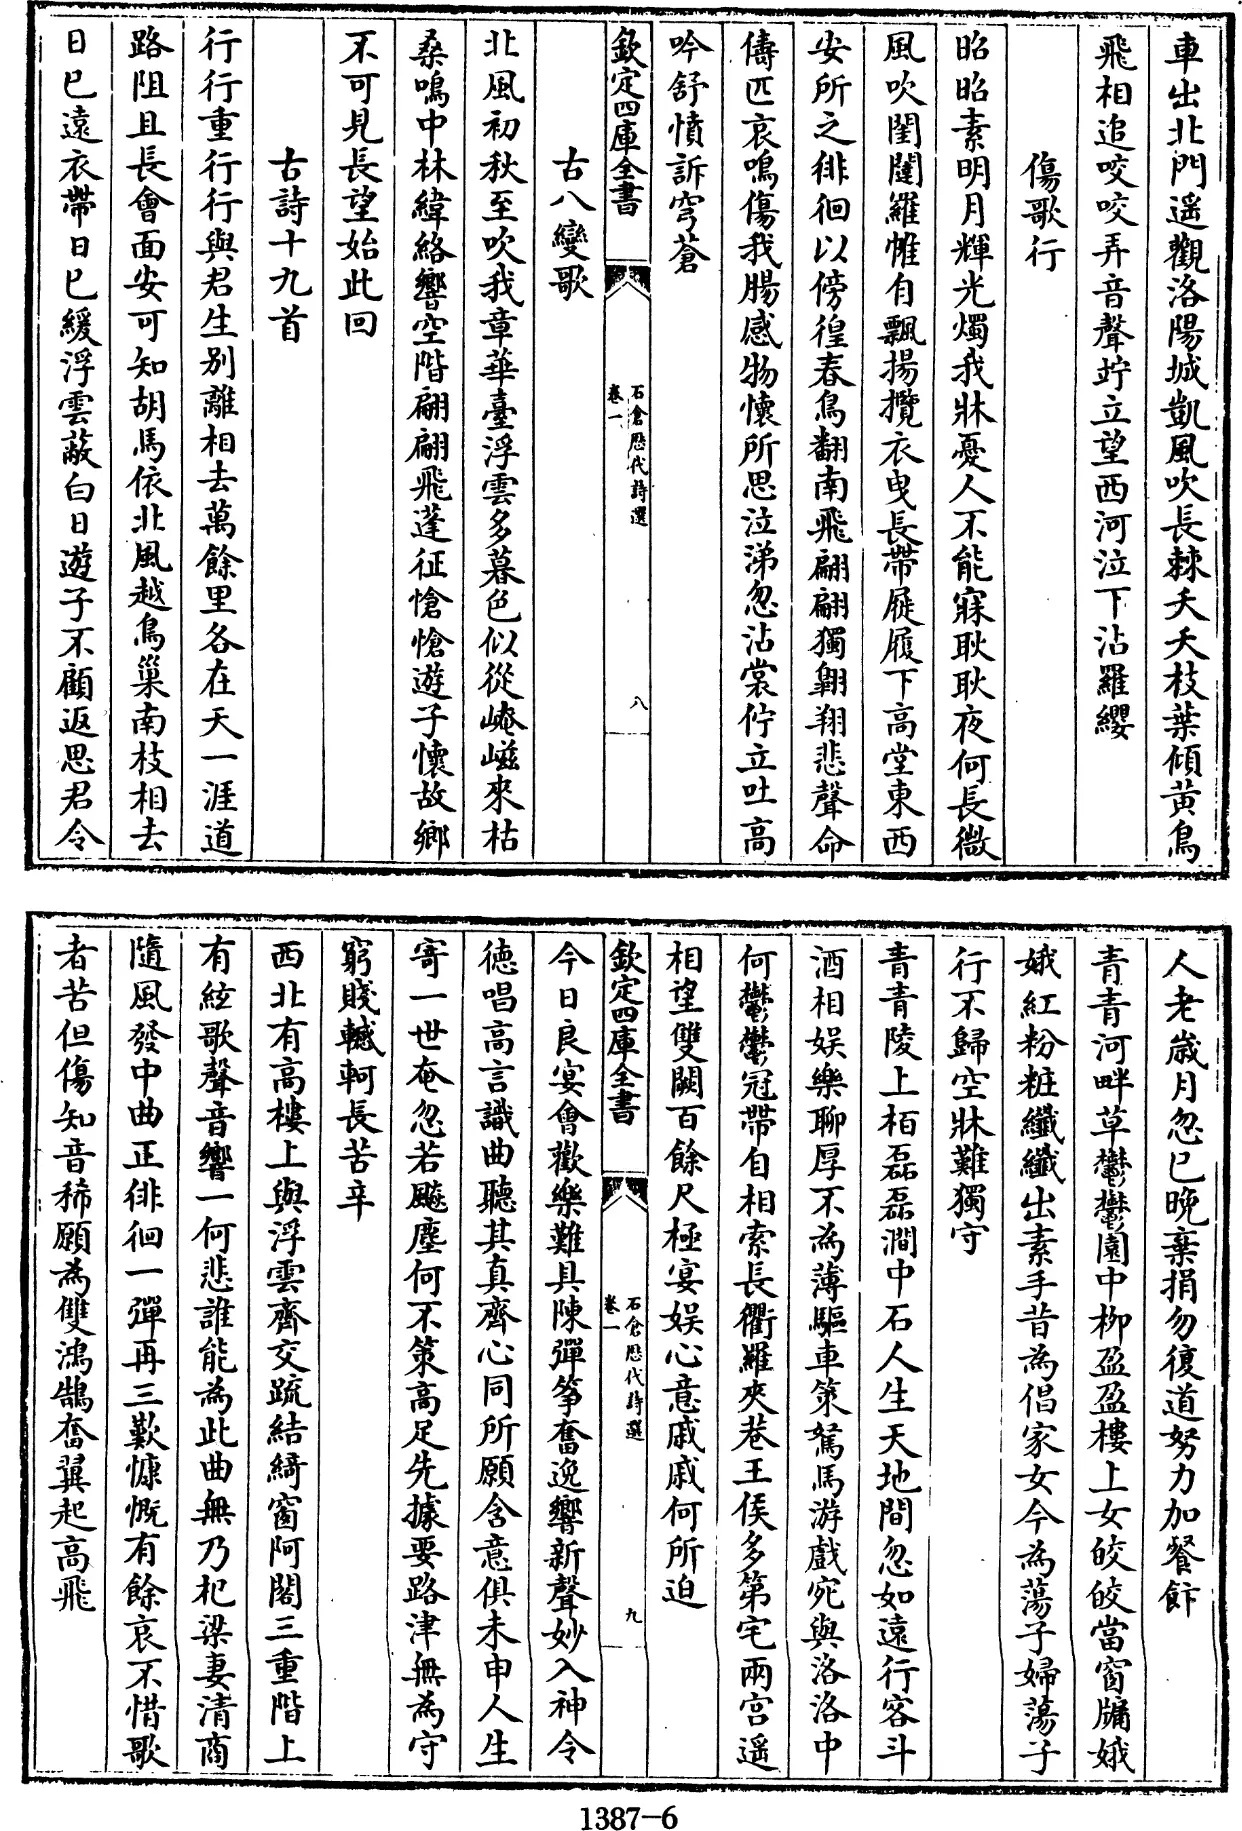 車出北門遥觀洛陽城凱風吹長棘夭夭枝葉傾黄鳥
飛相追咬咬弄音聲竚立望西河泣下沾羅纓
傷歌行
昭昭素明月輝光燭我牀憂人不能寐耿耿夜何長微
風吹閨闥羅帷自飄揚攬衣曳長帶屣履下高堂東西
安所之徘徊以傍徨春鳥翻南飛翩翩獨翱翔悲聲命
儔匹哀鳴傷我腸感物懷所思泣涕忽沾裳佇立吐高
吟舒憤訴穹蒼
欽定四庫全書
石倉歷代詩選
卷一
八
古八變歌
北風初秋至吹我章華臺浮雲多暮色似從崦嵫來枯
桑鳴中林緯絡響空階翩翩飛蓬征愴愴遊子懷故鄉
不可見長望始此回
古詩十九首
行行重行行與君生别離相去萬餘里各在天一涯道
路阻且長會面安可知胡馬依北風越鳥巢南枝相去
日已遠衣帶日已緩浮雲蔽白日遊子不顧返思君令
人老嵗月忽已晩棄捐勿復道努力加餐飰
青青河畔草鬱鬱園中柳盈盈樓上女皎皎當窗牖娥
娥紅粉粧纖纖出素手昔為倡家女今為蕩子婦蕩子
行不歸空牀難獨守
青青陵上栢磊磊澗中石人生天地間忽如遠行客斗
酒相娱樂聊厚不為薄驅車策駑馬游戲宛與洛洛中
何鬱鬱冠帶自相索長衢羅夾巷王侯多第宅兩宫遥
相望雙闕百餘尺極宴娱心意戚戚何所迫
欽定四庫全書
石倉歷代詩選
卷一
九
今日良宴會歡樂難具陳彈筝奮逸響新聲妙入神令
徳唱高言識曲聽其真齊心同所願含意俱未申人生
寄一世奄忽若飈塵何不策高足先據要路津無為守
窮賤轗軻長苦辛
西北有高樓上與浮雲齊交疏結綺窗阿閣三重階上
有絃歌聲音響一何悲誰能為此曲無乃杞梁妻清商
隨風發中曲正徘徊一彈再三歎慷慨有餘哀不惜歌
者苦但傷知音稀願為雙鴻鵠奮翼起高飛
1387-6